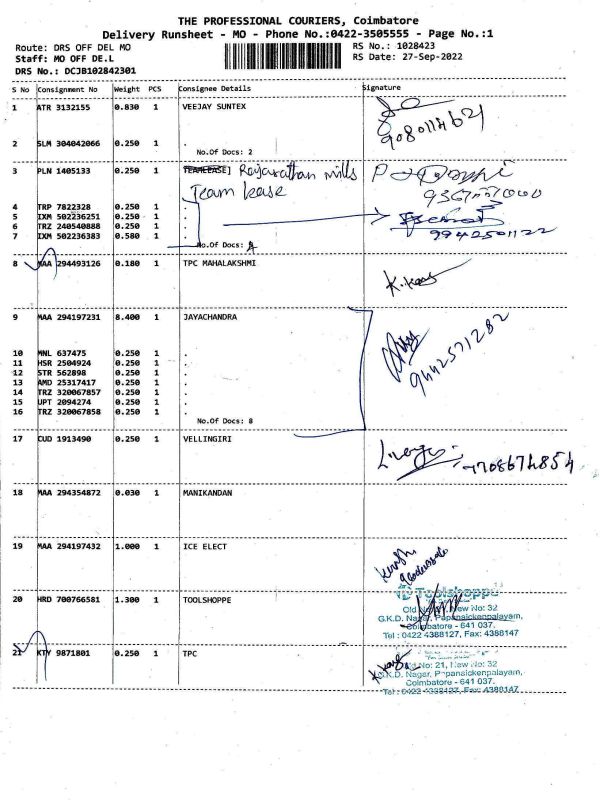 THE PROFESSIONAL COURIERS, Coimbatore
Delivery Runsheet - MO - Phone No.:0422-3505555 - Page No.:1
Route: DRS OFF DEL MO RS No.: 1028423
Staff: MO OFF DE.L RS Date: 27-Sep-2022
DRS No.: DCJB102842301
S No Consignment No Weight PCS Consignee Details Signature
1 ATR 3132155 0.830 1 VEEJAY SUNTEX
9080114621
2 SLM 304042066 0.250 1 .
No.Of Docs: 2
3 PLN 1405133 0.250 1 TEAMLEASE] Rajarathan mills
Team lease
4 TRP 7822328 0.250 1 .
5 IXM 502236251 0.250 1 .
6 TRZ 240540888 0.250 1 .
7 IXM 502236383 0.580 1 .
9942501122
No.Of Docs:
8 MAA 294493126 0.180 1 TPC MAHALAKSHMI
9 MAA 294197231 8.400 1 JAYACHANDRA
9442571282
10 MNL 637475 0.250 1 .
11 HSR 2504924 0.250 1 .
12 STR 562898 0.250 1 .
13 AMD 25317417 0.250 1 .
14 TRZ 320067857 0.250 1 .
15 UPT 2094274 0.250 1 .
16 TRZ 320067858 0.250 1 .
No.Of Docs: 8
17 CUD 1913490 0.250 1 VELLINGIRI
7708674854
18 MAA 294354872 0.030 1 MANIKANDAN
19 MAA 294197432 1.000 1 ICE ELECT
20 HRD 700766581 1.300 1 TOOLSHOPPE
Toolshoppe
Old No: 21, New No: 32
G.K.D. Nagar, Papanaickenpalayam,
Coimbatore - 641 037.
Tel : 0422 4388127, Fax: 4388147
21 KTY 9871801 0.250 1 TPC
Old No: 21, New No: 32
G.K.D. Nagar, Papanaickenpalayam,
Coimbatore - 641 037.
Tel : 0422 4388127, Fax: 4388147